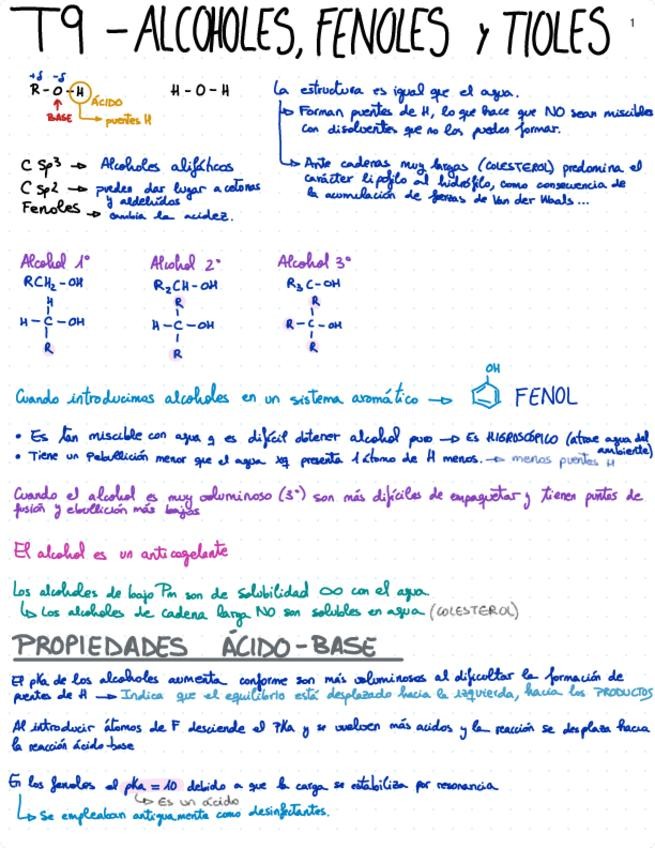 T9 - ALCOHOLES, FENOLES y TIOLES
1
+δ -δ
R-O-H
ÁCIDO
BASE
puentes H
H-O-H
La estructura es igual que el agua.
Forman puentes de H, lo que hace que NO sean miscibles
con disolventes que no los puedes formar.
Ante cadenas muy largas (COLESTEROL) predomina el
carácter lipófilo al hidrófilo, como consecuencia de
la acumulación de fuerzas de Van der Waals...
C Sp3 → Alcoholes alifáticos
C Sp2 → puedes dar lugar a cetonas
y aldehidos
Fenoles → cambia la acidez.
Alcohol 1° Alcohol 2° Alcohol 3°
RCH2-OH R2CH-OH R3C-OH
H R R
H-C-OH H-C-OH R-C-OH
R R R
OH
Cuando introducimos alcoholes en un sistema aromático → FENOL
• Es tan miscible con agua q es difícil obtener alcohol puro → Es HIGROSCÓPICO (atrae agua del
ambiente)
• Tiene un Pebullición menor que el agua xq presenta 1 átomo de H menos. → menos puentes H
Cuando el alcohol es muy voluminoso (3°) son más difíciles de empaquetar y tienen puntos de
fusión y ebullición más bajos
El alcohol es un anticogelante
Los alcoholes de bajo Pm son de solubilidad ∞ con el agua.
↳ Los alcoholes de cadena larga NO son solubles en agua (COLESTEROL)
PROPIEDADES ÁCIDO-BASE
El pKa de los alcoholes aumenta conforme son más voluminosos al dificultar la formación de
puentes de H → Indica que el equilibrio está desplazado hacia la izquierda, hacia los PRODUCTOS
Al introducir átomos de F desciende el PKa y se vuelven más acidos y la reacción se desplaza hacia
la reacción ácido-base
En los fenoles el pKa = 10 debido a que la carga se estabiliza por resonancia
↳ Es un ácido
↳ Se empleaban antiguamente como desinfectantes.